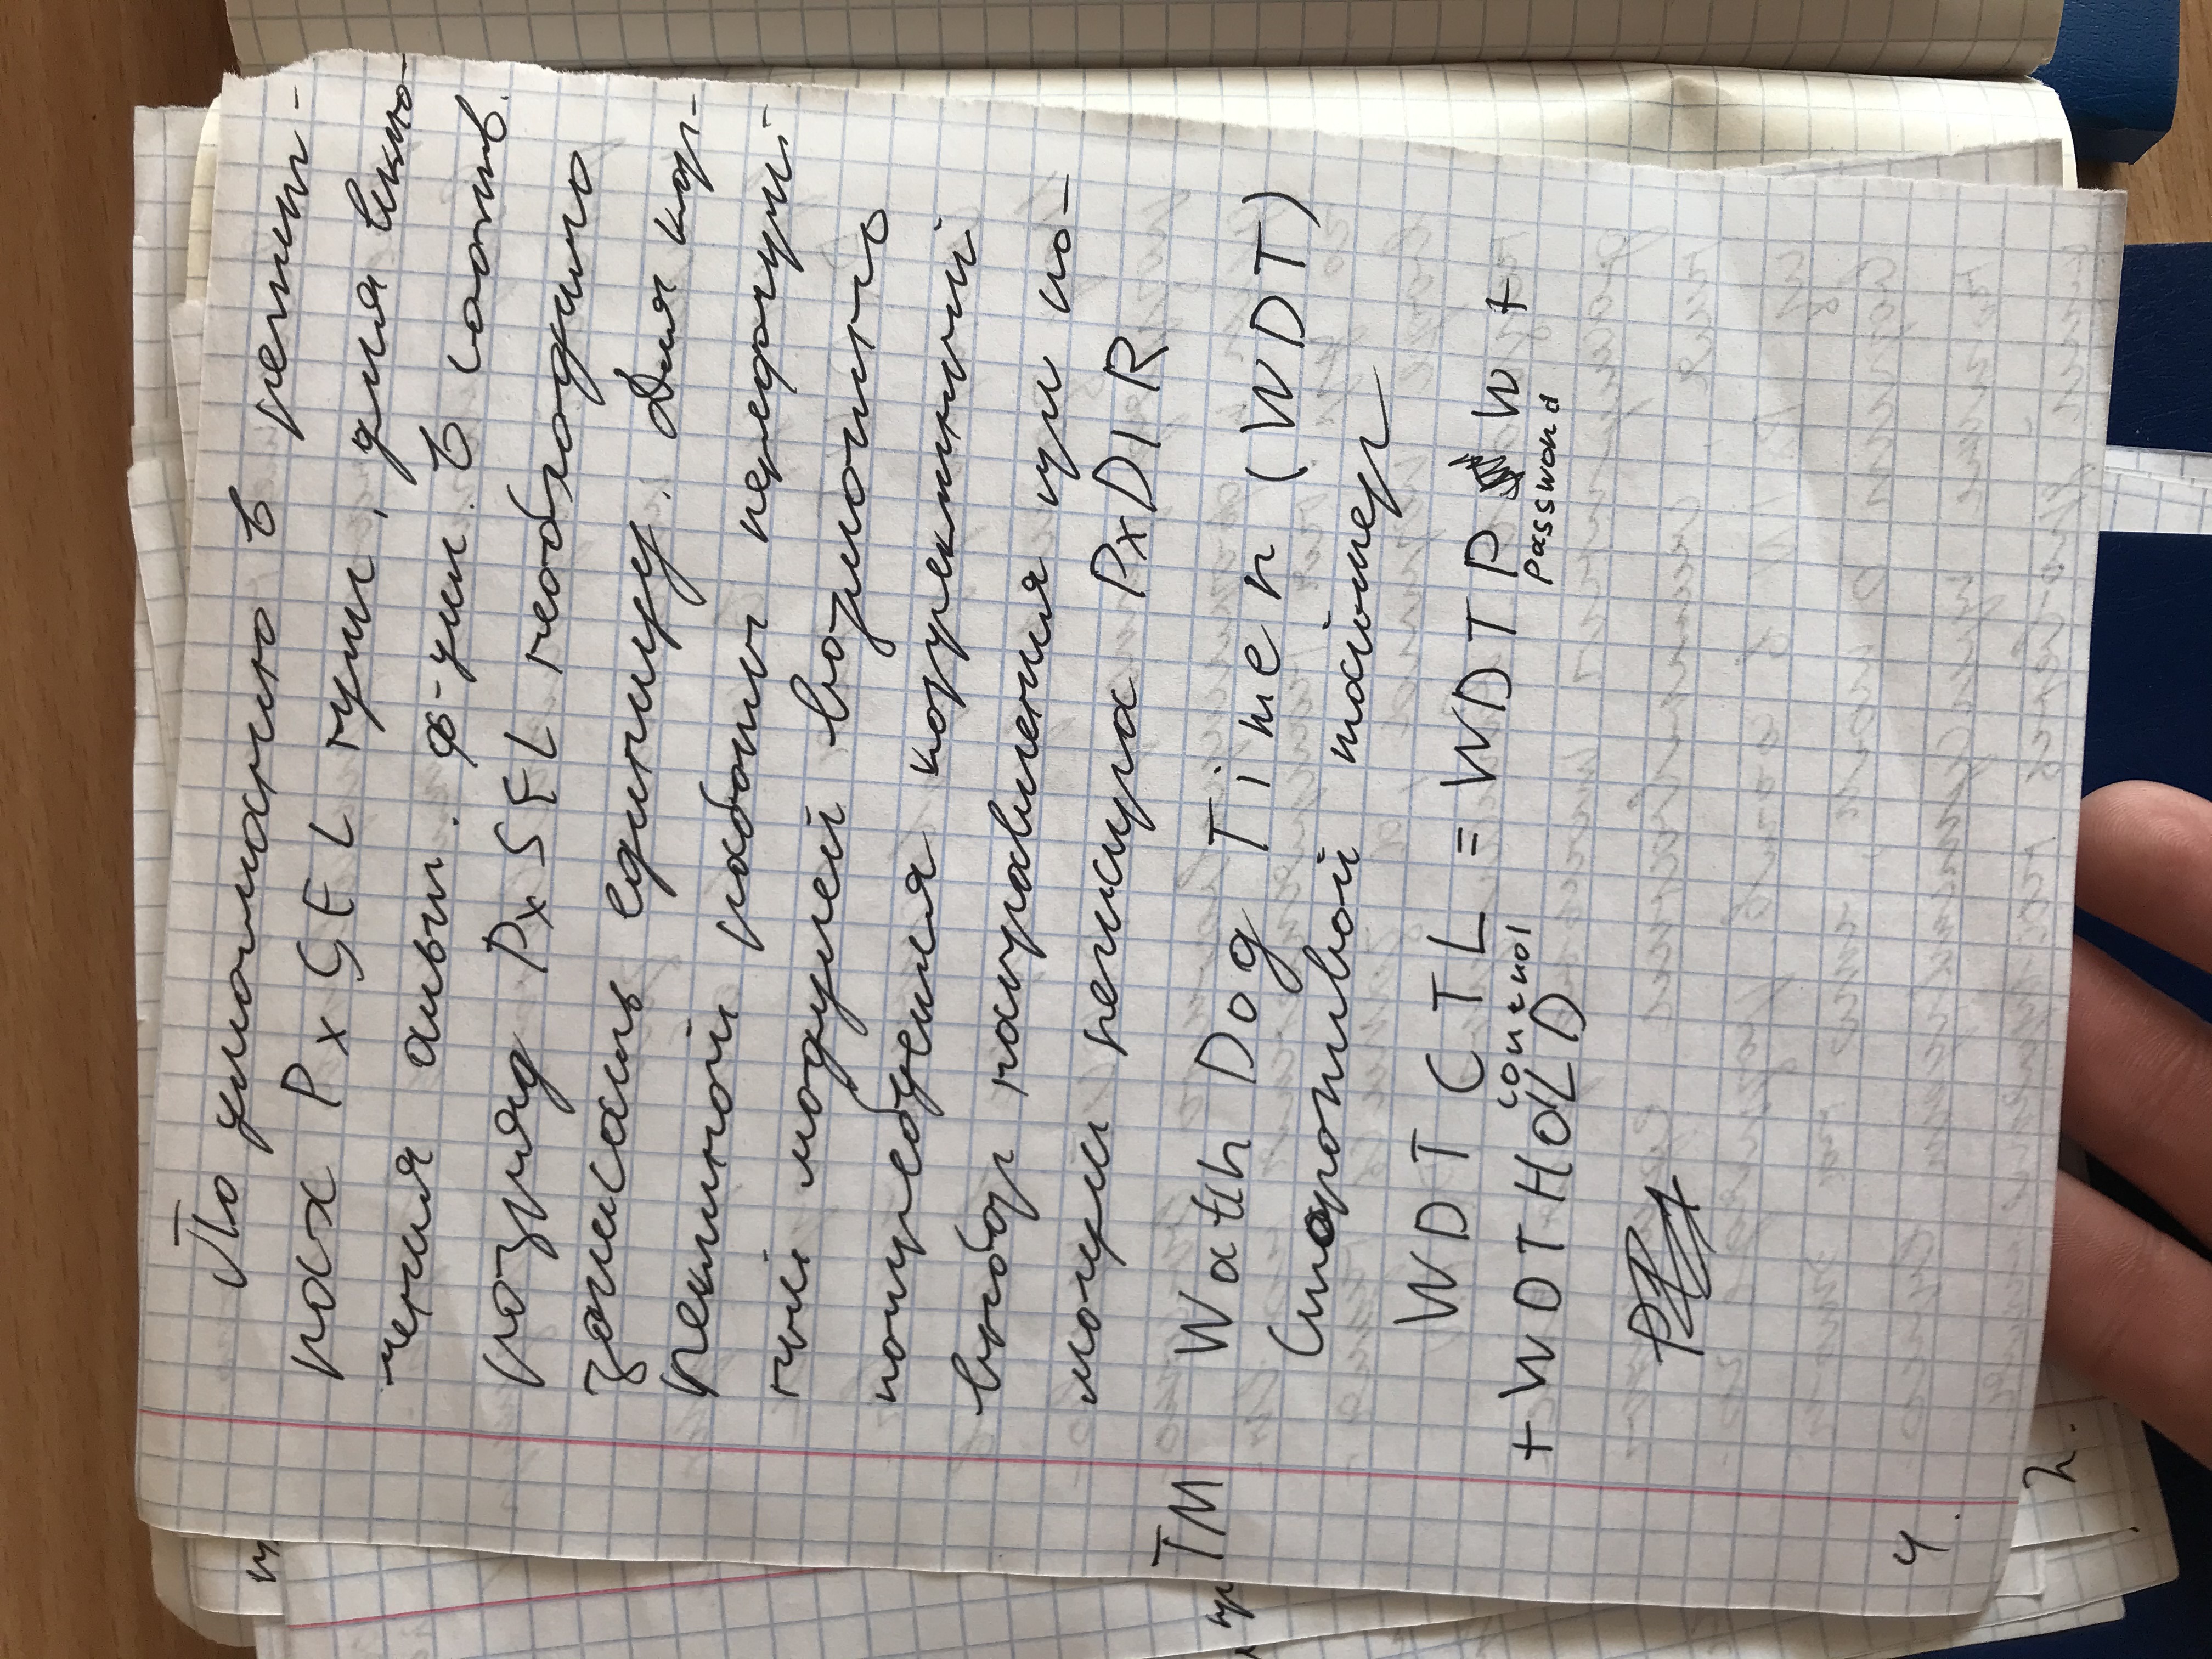 По умолчанию в регист-
рах PxSEL нули, для вклю-
чения альт. ф-ции. в соотв.
разряд PxSEL необходимо
записать единицу. Для кор-
ректной работы
модулей возможно
потребуется корректный
выбор направления при по-
мощи регистра PxDIR
TM Watch Dog Timer (WDT)
Сторожевой таймер
WDTCTL = WDTPW +
control password
+ WDTHOLD
4.
2.